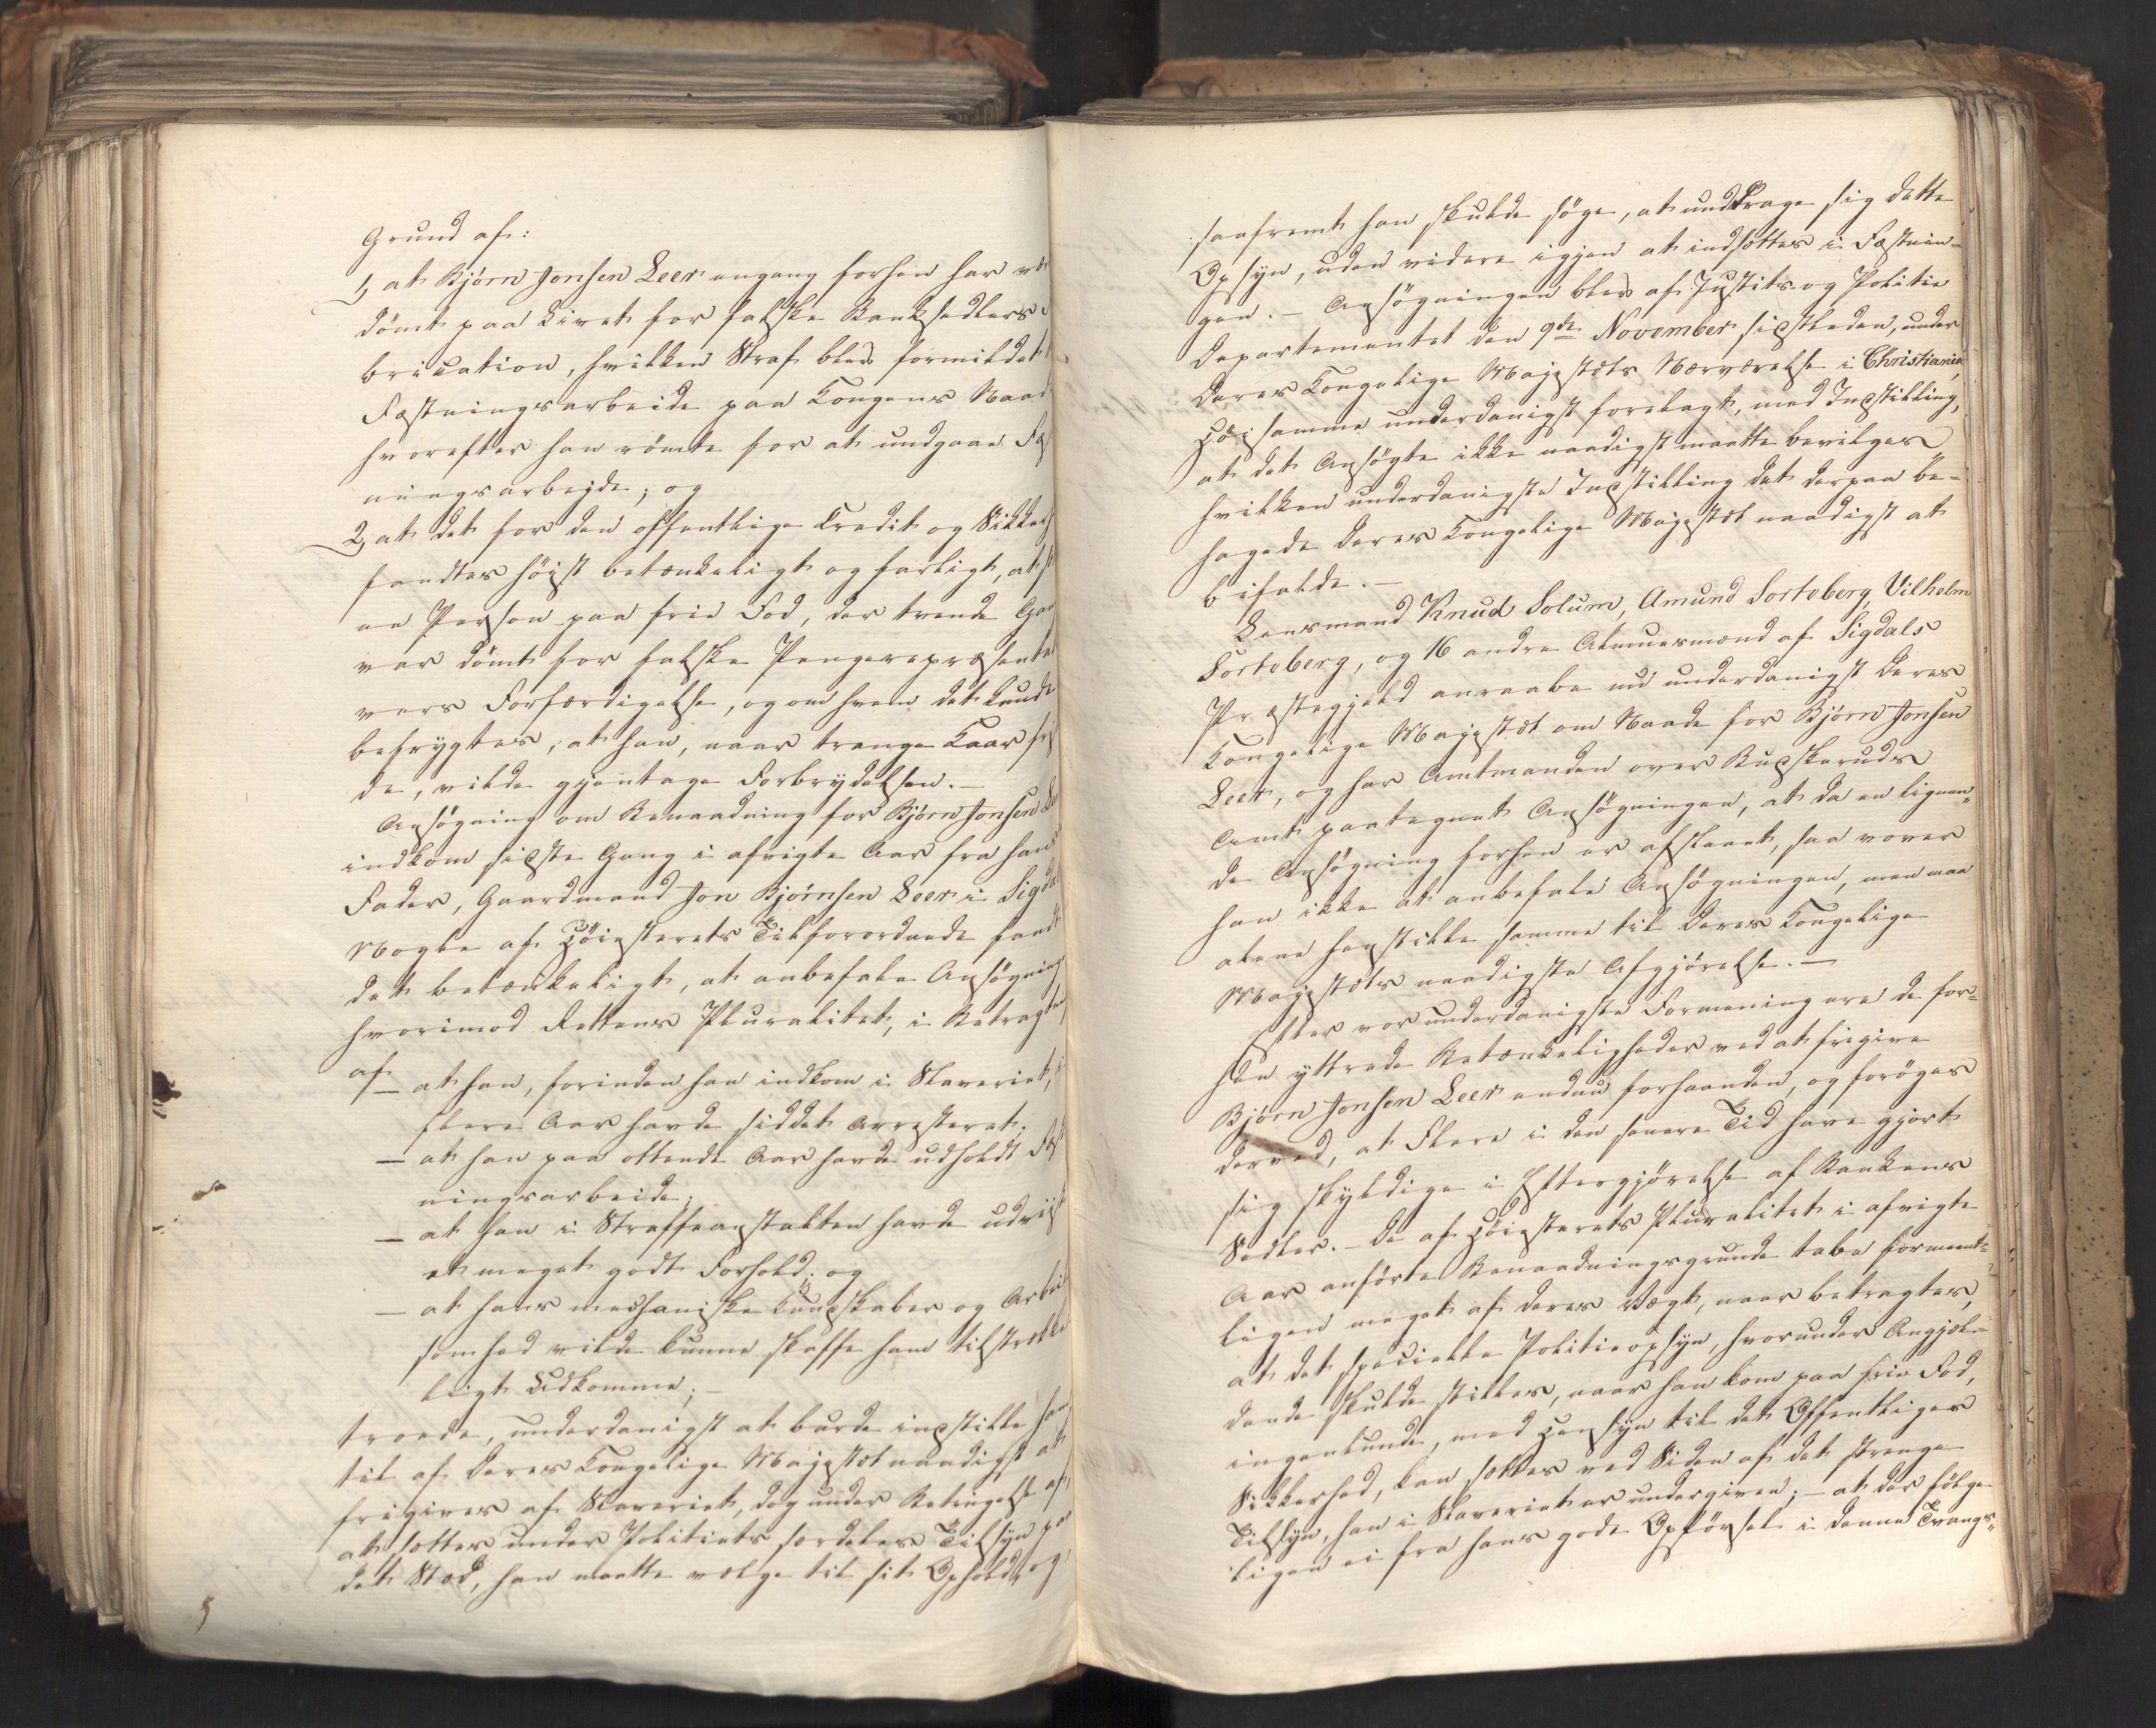 Grund af:
1, at Bjørn Jonsen Leer engang forhen har vær
dömt paa Livet for falske Banksedlers
brication, hvilken Straf blev formildet
Fæstningsarbeide paa Kongens Naad
hvorefter han römte for at undgaae Fæst
ningsarbejde; og
2, at det for den offentlige Credit og Sikkerh
fandtes höist betænkeligt og farligt, at
en Person paa frie Fod, der trende Gan
var dömt for falske Pengerepræsenta
vers Forfærdigelse, og om hvem det kunde
befrygtes, at han, naar trange Kaar
de, vilde gjentage Forbrydelsen.—
Ansögning om Benaadning for Bjørn Jonsen
indkom sidste Gang i afvigte Aar fra hans
Fader, Gaardmand Jon Bjørnsen Leer i Sigdal
Nogle af Höiesterets Tilforordnede fandt
det betænkeligt, at anbefale Ansögning
hvorimod Rettens Pluralitet, i Betragtn
af — at han, forinden han indkom i Slaveriet,
flere Aar havde siddet arresteret;
— at han paa ottende Aar havde udholdt Fæst
ningsarbeide;
— at han i Straffeanstalten havde udviist
et meget godt Forhold; og
— at hans mechaniske Kundskaber og Arbei
somhed vilde kunne skaffe ham tilstrække
ligt Udkomme;—
troede, underdanigst at burde indstille ham
til af Deres Kongelige Majestæt naadigst at
frigives af Slaveriet, dog under Betingelse af
at sættes under Politiets særdeles Tilsyn paa
det Sted, han maatte vælge til sit Ophold, og
saafremt han skulde söge, at unddrage sig dette
Opsyn, uden videre igjen at indsættes i Fæstnin-
gen.— Ansögningen blev af Justits- og Politie
Departementet den 9de November sidstleden, under
Deres Kongelige Majestæts Nærværelse i Christiania,
Höisamme underdanigst forelagt, med Indstilling,
at det Ansögte ikke naadigst maatte bevilges
hvilken underdanigste Indstilling det derpaa be-
hagede Deres Kongelige Majestæt naadigst at
bifalde.—
Lensmand Knud Solum, Amund Sorteberg, Vilhelm
Sorteberg, og 16 andre Almuesmænd af Sigdals
Præstegjeld anraabe nu underdanigst Deres
Kongelige Majestæt om Naade for Bjørn Jonsen
Leer, og har Amtmanden over Buskeruds
Amt paategnet Ansögningen, at da en lignen-
de Ansögning forhen er afslaaet, saa vover
han ikke at anbefale Ansögningen, men maa
alene henstille samme til Deres Kongelige
Majestæts naadigste Afgjörelse.—
Efter vor underdanigste Formening ere de for-
hen yttrede Betænkeligheder ved at frigive
Bjørn Jonsen Leer endnu forhaanden, og foröges
derved, at Flere i den senere Tid have gjort
sig skyldige i Eftergjörelse af Bankens
Sedler.— De af Höiesterets Pluralitet i afvigte
Aar anförte Benaadningsgrunde tabe formeent-
ligen meget af deres Vægt, naar betragtes,
at det specielle Politieopsyn, hvorunder Angjæl-
dende skulde stilles, naar han kom paa frie Fod,
ingenlunde, med Hensyn til det Offentliges
Sikkerhed, kan sættes ved Siden af det strenge
Tilsyn, han i Slaveriet er undergiven;— at der fölge-
ligen ei fra hans gode Opförsel i denne Tvangs-